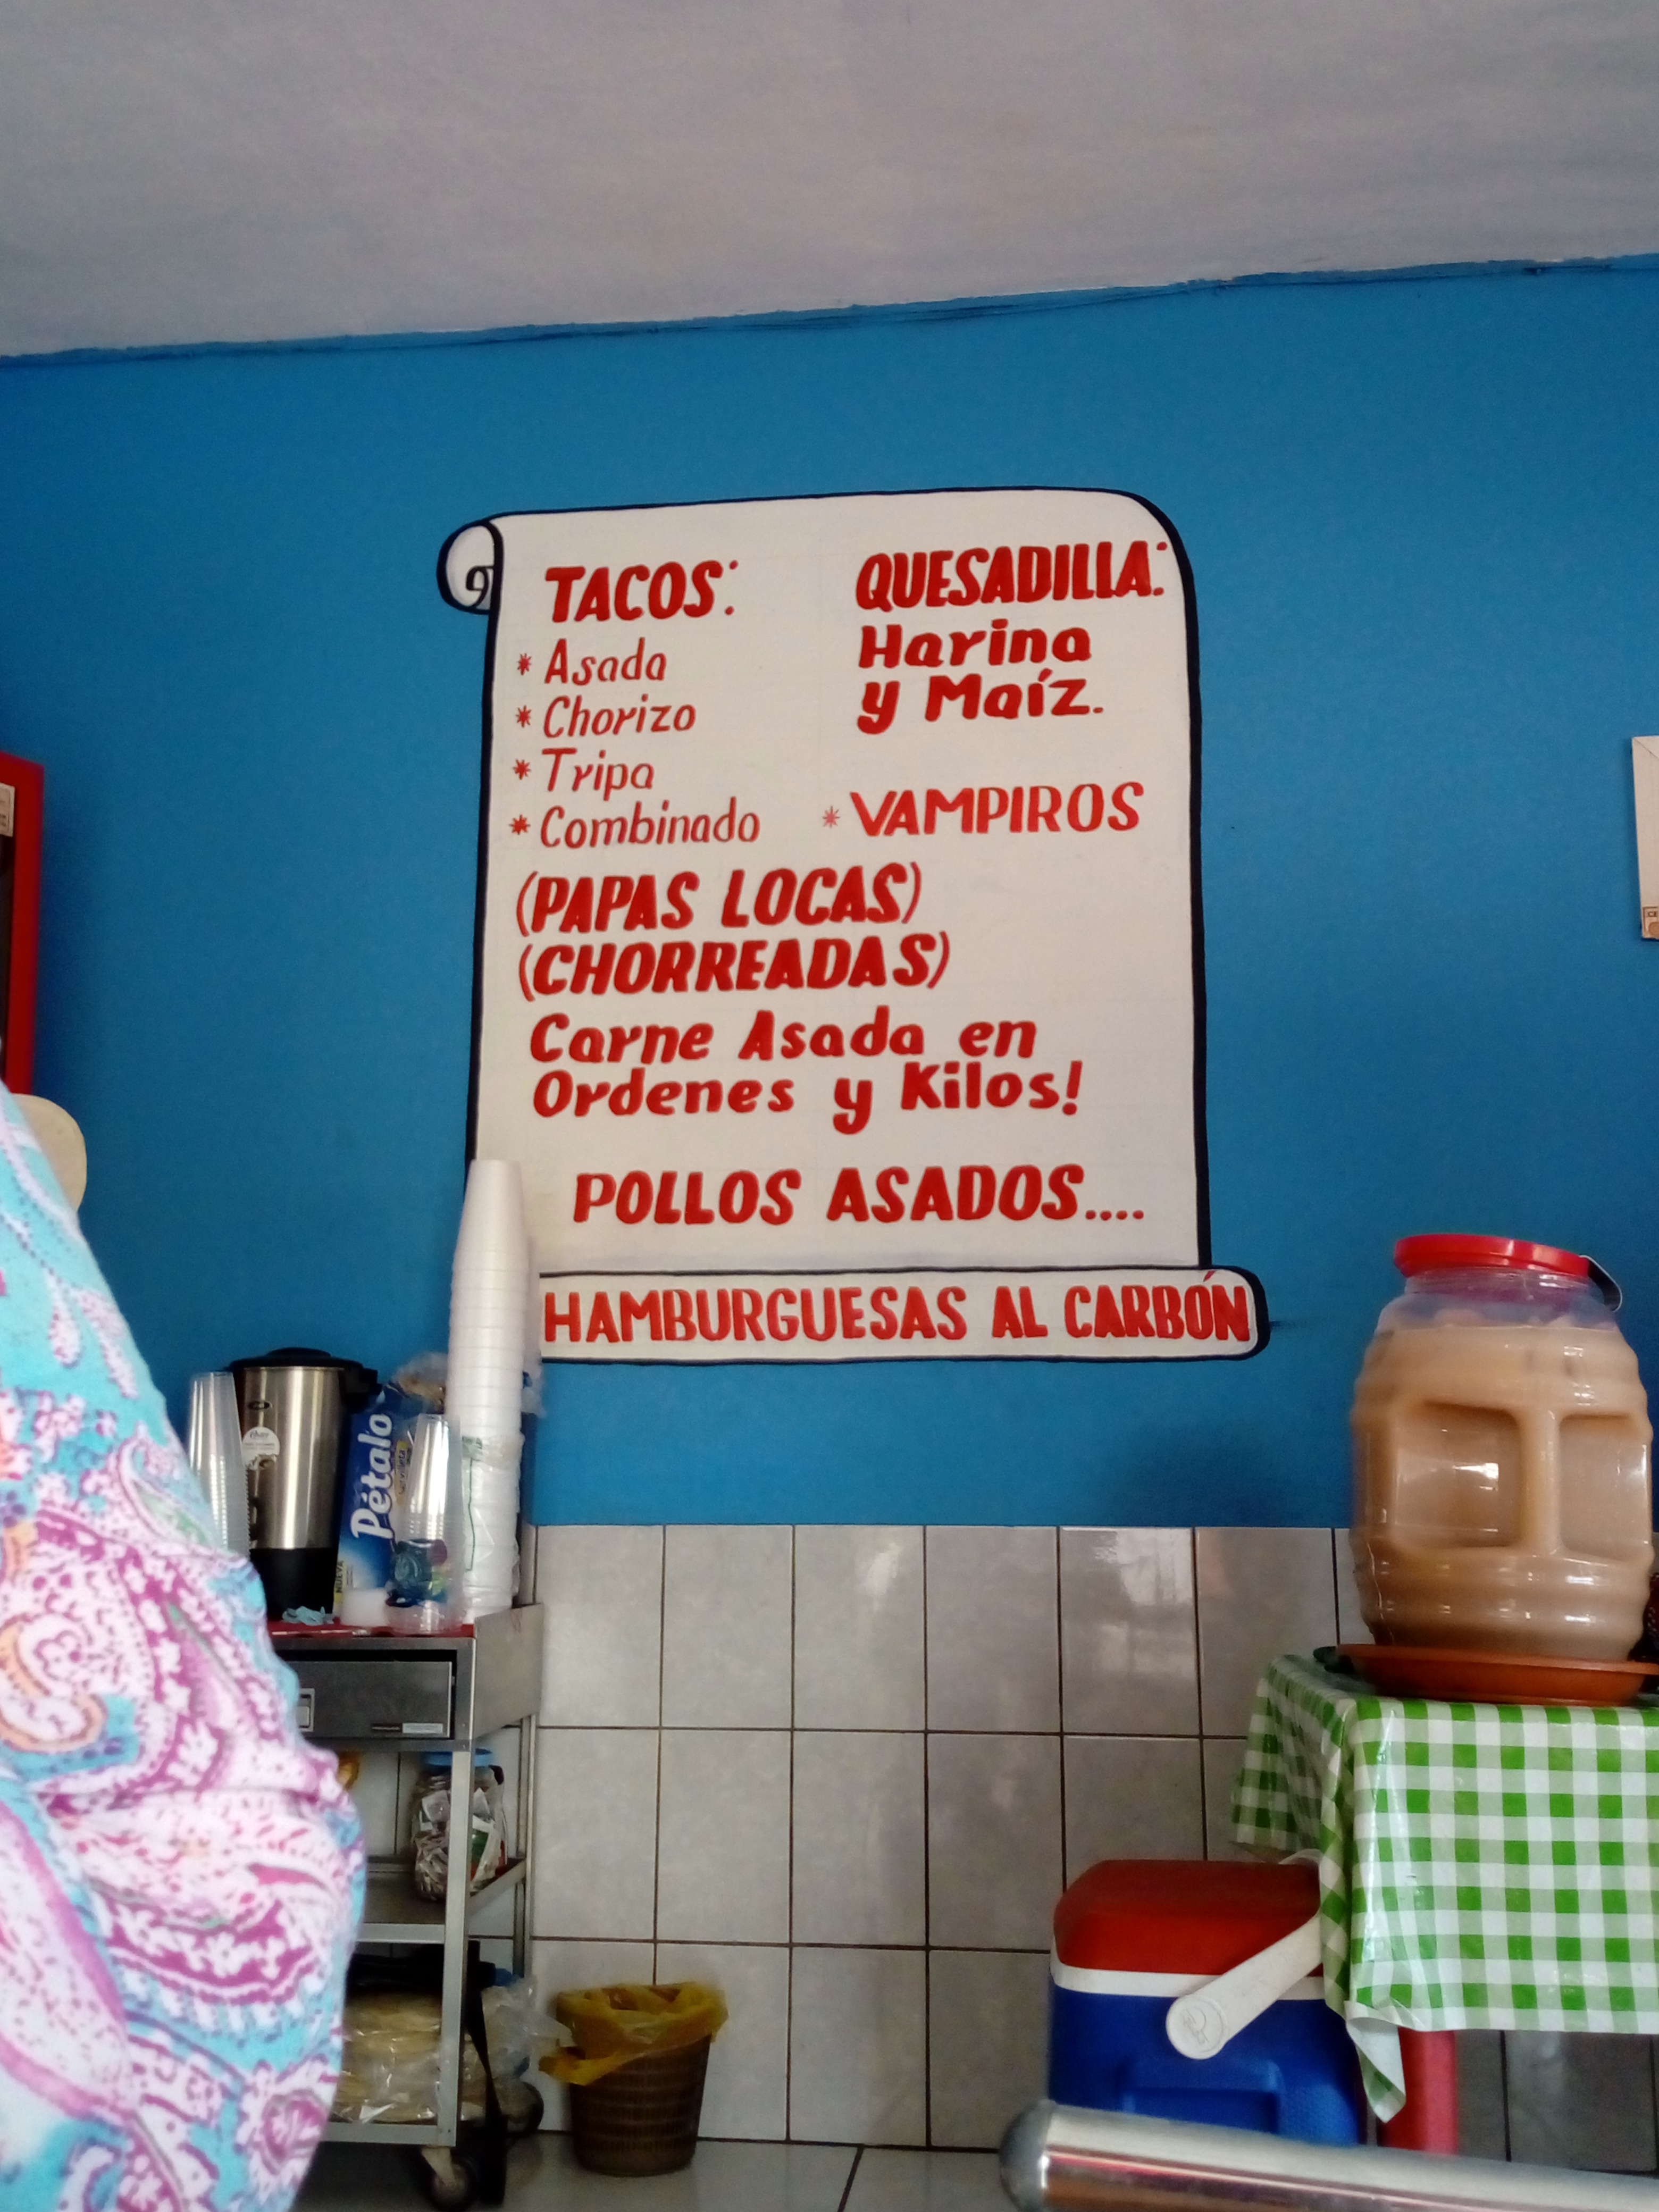 TACOS:
* Asada
* Chorizo
* Tripa
* Combinado
QUESADILLA:
Harina
y Maíz.
* VAMPIROS
(PAPAS LOCAS)
(CHORREADAS)
Carne Asada en
Ordenes y Kilos!
POLLOS ASADOS....
HAMBURGUESAS AL CARBÓN
Pétalo